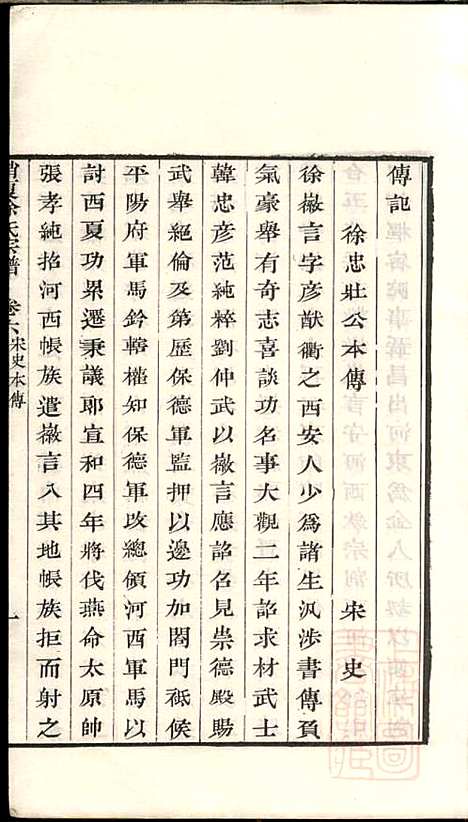 傳記
徐忠壯公本傳　宋史
徐徽言字彥猷衢之西安人少爲諸生汎涉書傳負
氣豪舉有奇志喜談功名事大觀二年詔求材武士
韓忠彥范純粹劉仲武以徽言應詔召見崇德殿賜
武舉絕倫及第歷保德軍監押以邊功加閤門祗候
平陽府軍馬鈐轄權知保德軍改總領河西軍馬以
討西夏功累遷秉議郎宣和四年將伐燕命太原帥
張孝純招河西帳族遣徽言入其地帳族拒而射之
徐氏宗譜　卷六宋史本傳　一